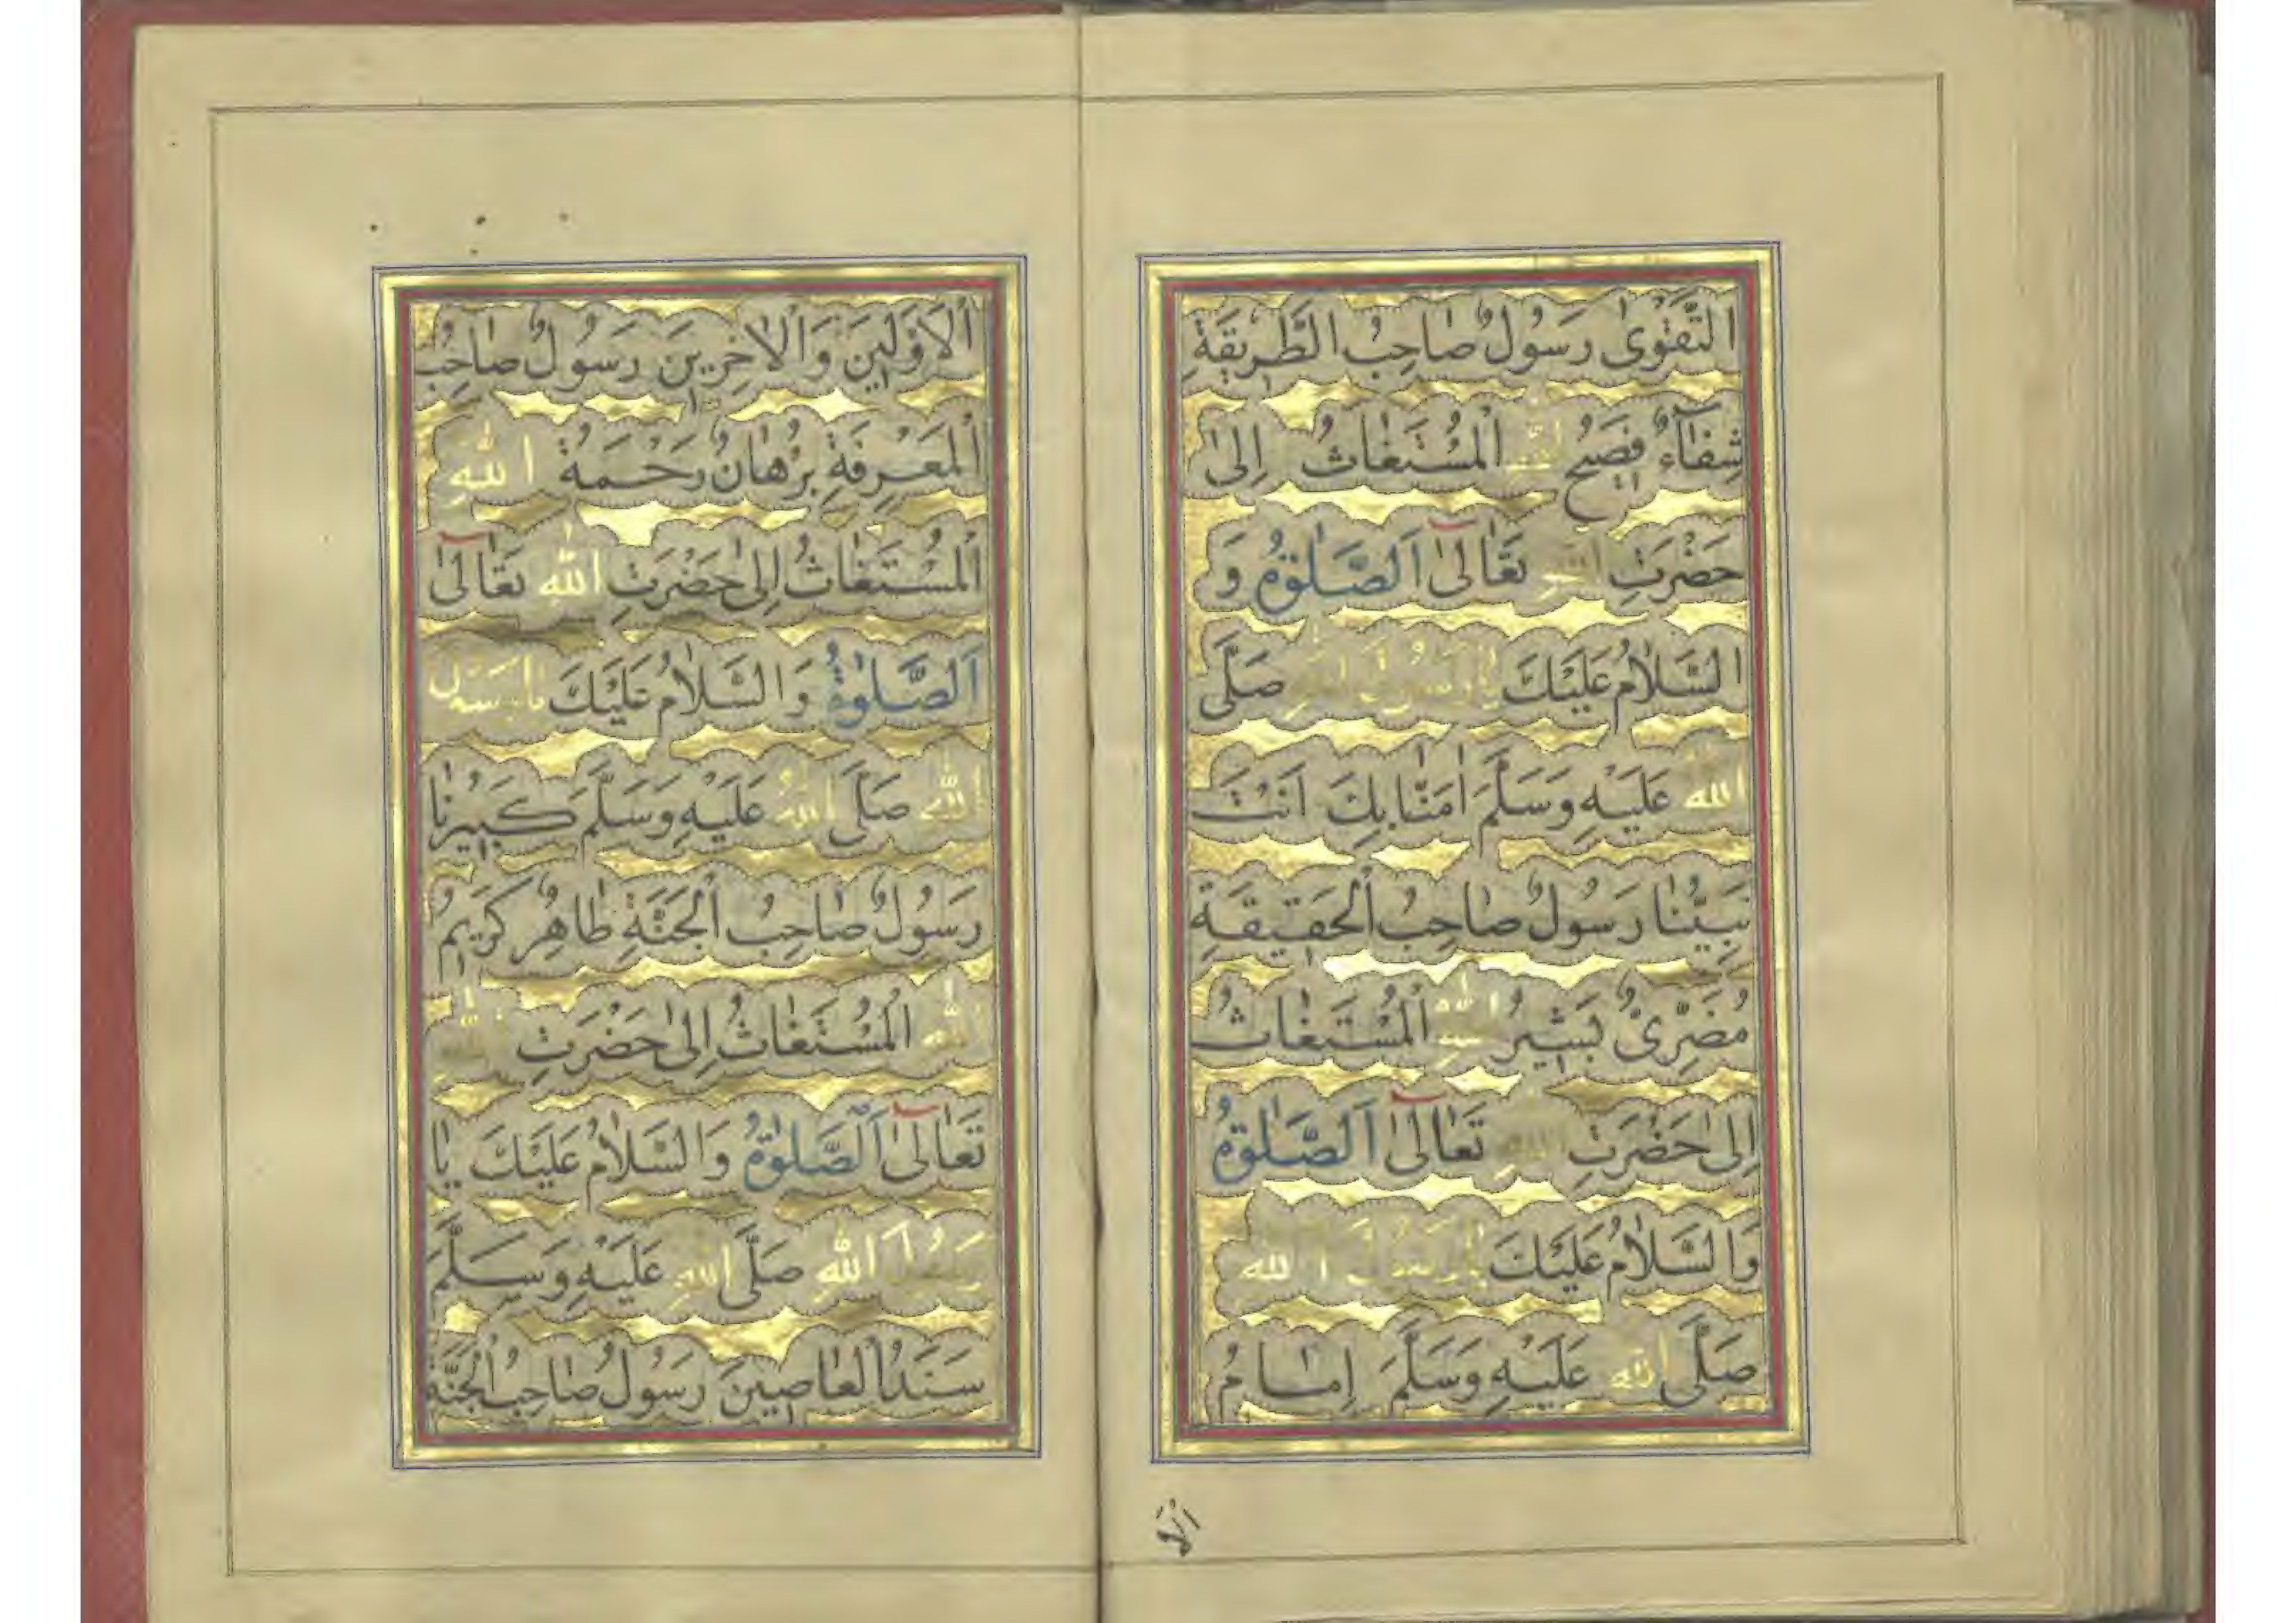 التَّقْوٰى رَسُولٌ صَاحِبُ الطَّرِيقَةِ
شِفَآءٌ فَصِيحُ اللهِ اَلْمُسْتَغَاثُ اِلٰى
حَضْرَتِ اللهِ تَعَالٰى اَلصَّلٰوةُ وَ
السَّلَامُ عَلَيْكَ يَا رَسُولَ اللهِ صَلَّى
اللهُ عَلَيْهِ وَسَلَّمَ اٰمَنَّا بِكَ اَنْتَ
نَبِيُّنَا رَسُولٌ صَاحِبُ الْحَقِيقَةِ
مُضَرِىٌّ بَشِيرُ اللهِ اَلْمُسْتَغَاثُ
اِلٰى حَضْرَتِ اللهِ تَعَالٰى اَلصَّلٰوةُ
وَالسَّلَامُ عَلَيْكَ يَا رَسُولَ اللهِ
صَلَّى اللهُ عَلَيْهِ وَسَلَّمَ اِمَامُ
اَلْا
اَلْاَوَّلِينَ وَالْاٰخِرِينَ رَسُولٌ صَاحِبُ
الْمَعْرِفَةِ بُرْهَانٌ رَحْمَةُ اللهِ
اَلْمُسْتَغَاثُ اِلٰى حَضْرَتِ اللهِ تَعَالٰى
اَلصَّلٰوةُ وَالسَّلَامُ عَلَيْكَ يَا رَسُولَ
اللهِ صَلَّى اللهُ عَلَيْهِ وَسَلَّمَ كَبِيرُنَا
رَسُولٌ صَاحِبُ الْجَنَّةِ طَاهِرٌ كَرِيمُ
اللهِ اَلْمُسْتَغَاثُ اِلٰى حَضْرَتِ اللهِ
تَعَالٰى اَلصَّلٰوةُ وَالسَّلَامُ عَلَيْكَ يَا
رَسُولَ اللهِ صَلَّى اللهُ عَلَيْهِ وَسَلَّمَ
سَنَدُ الْعَاصِينَ رَسُولٌ صَاحِبُ الْجَنَّةِ